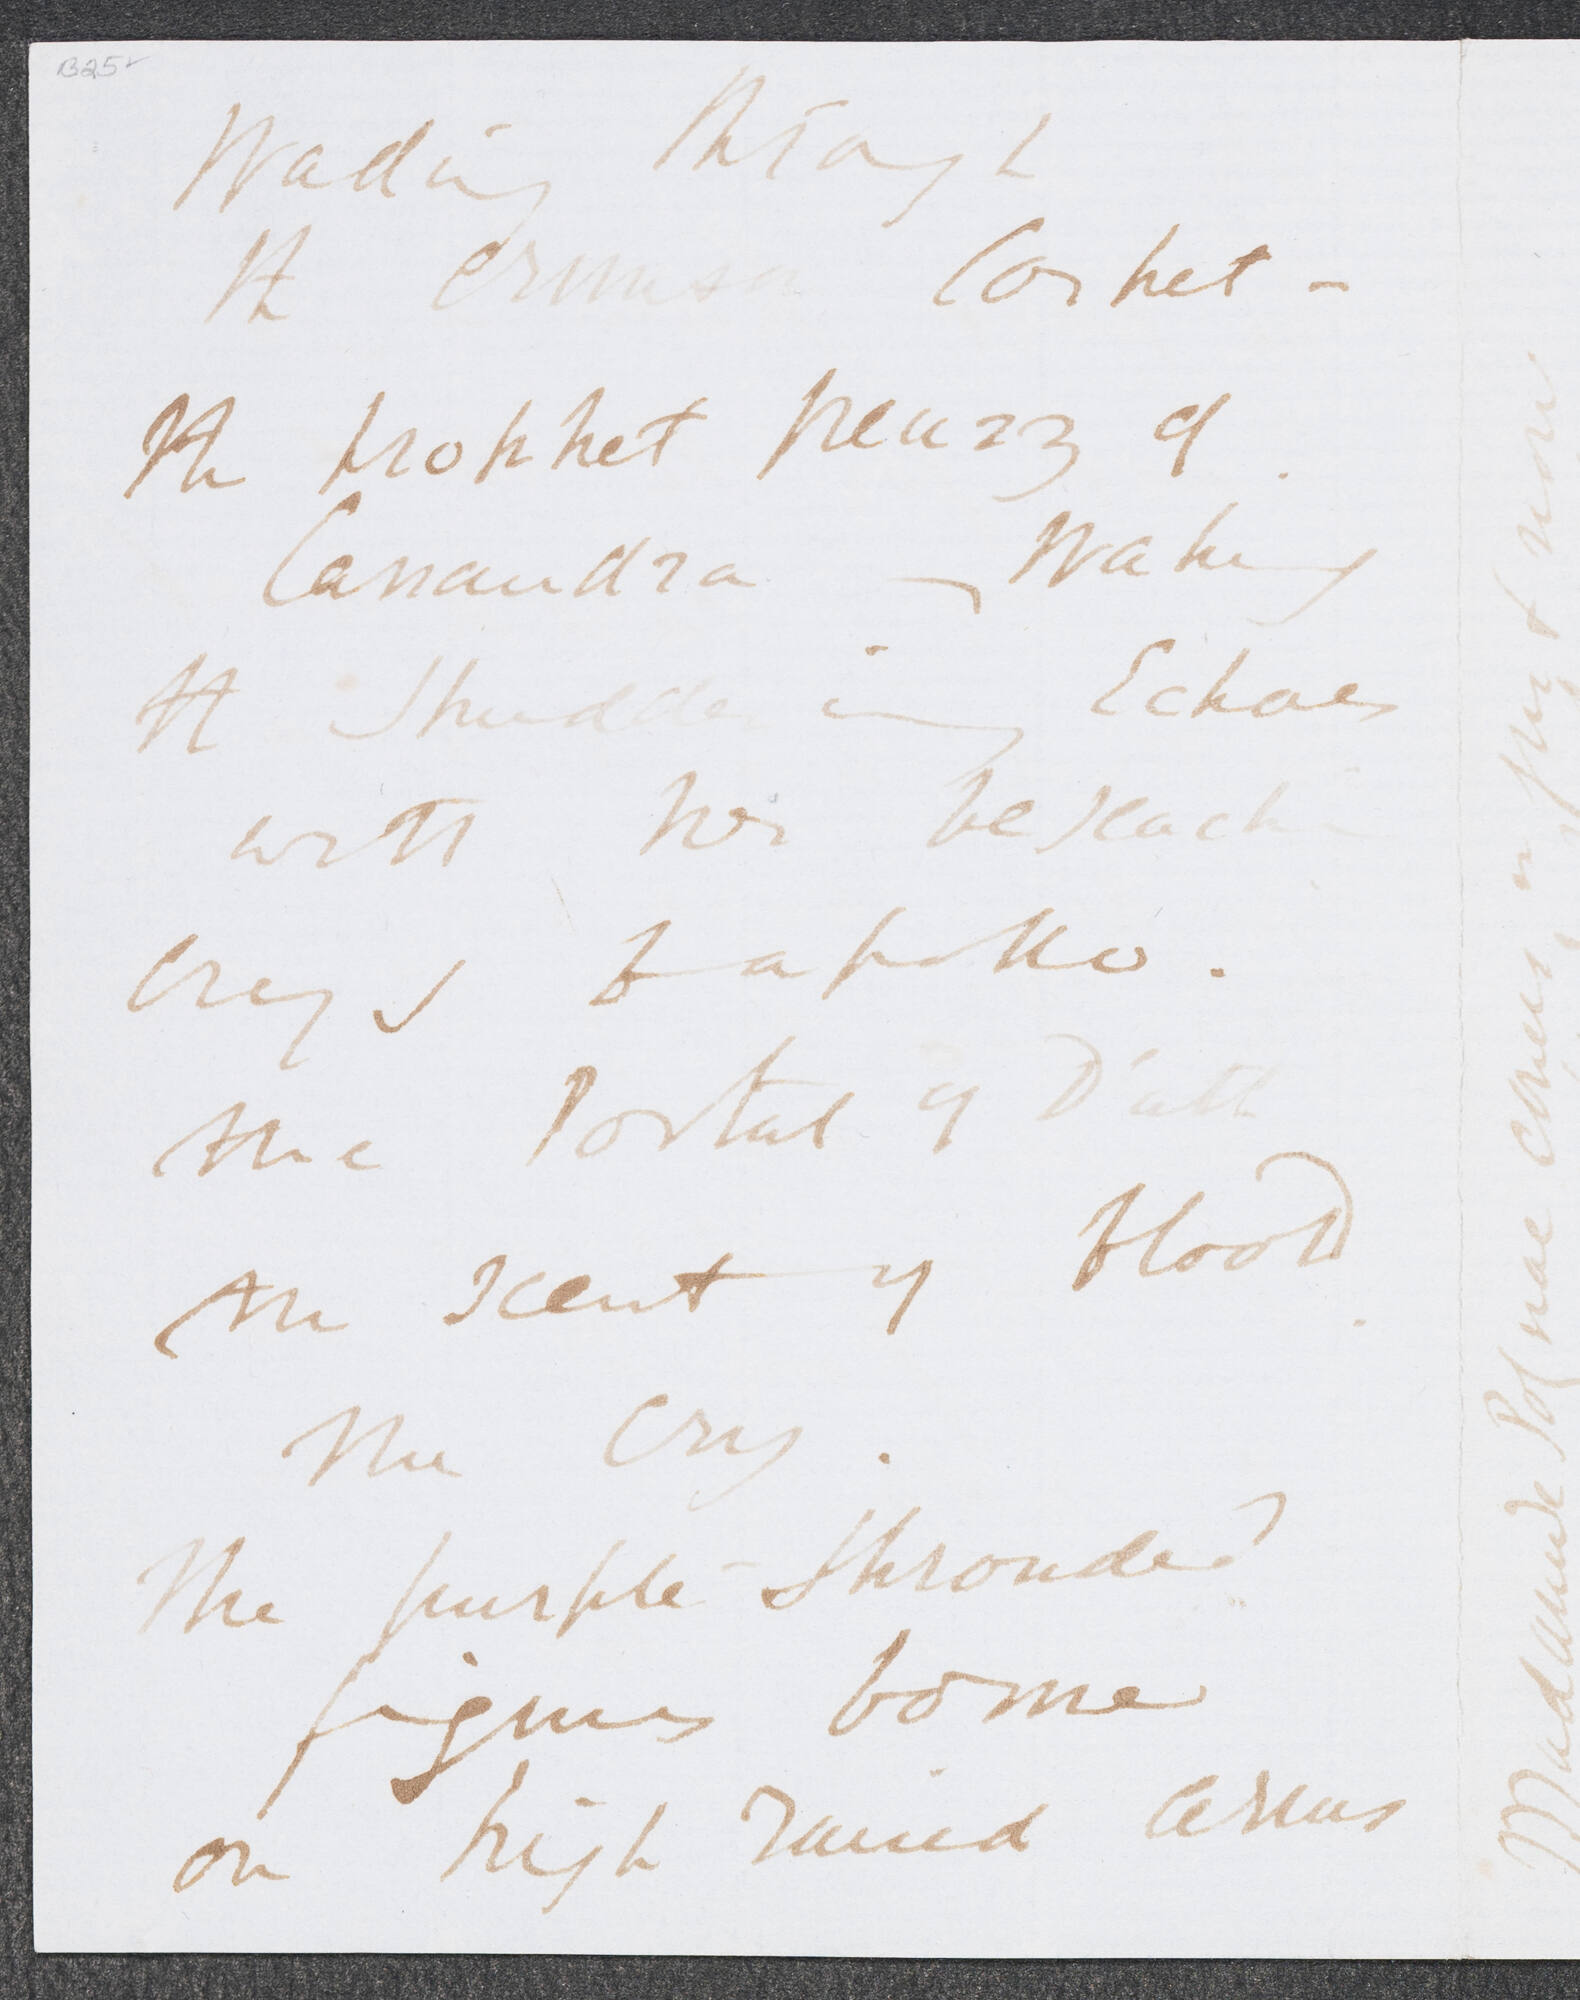 B25
Wading through
the crimson Carpet -
The prophet frenzy of
Cassandra - Waking
the shuddering Echoes
with her beseeching
crys to apollo.
the Portal of Death
the scent of blood
The cry.
The purple-shrouded
figures borne
on high raised arms
Madame Polnae comes in fur & more